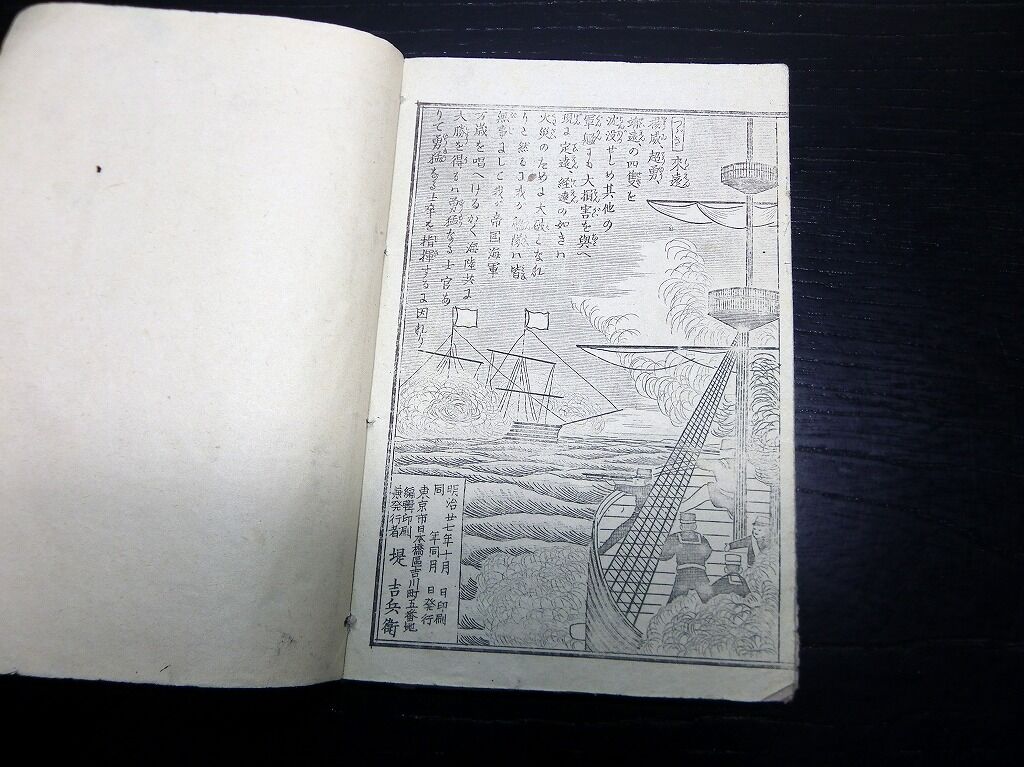 つゞき 来遠
揚威、超勇、
靖遠の四隻を
沈没せしめ其他の
軍艦にも大損害を與へ
現に定遠、経遠の如きハ
火災のためよ大破となれ
りと然るに我が艦隊ハ皆
無事まして我が帝國海軍
万歳を唱へけるかく海陸共よ
大勝を得るハ勇猛なる士官あ
りて勇猛なる士卒を指揮するよ因れり
明治廿七年十月 日印刷
同 年同月 日発行
東京市日本橋區吉川町五番地
編輯印刷
兼発行者 堤 吉兵衛